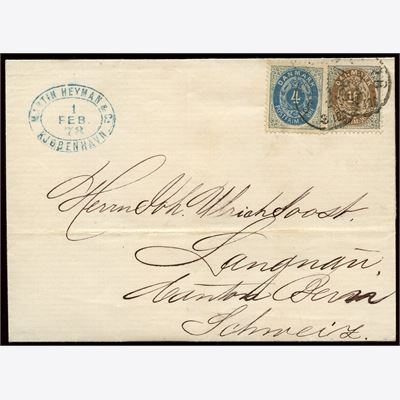 MARTIN HEYMAN & Co.
1
FEB.
78
KJØBENHAVN.
DANMARK
4
DANMARK
Herrn Joh. Ulrich Joost.
Langnau.
Canton Bern
Schweiz.